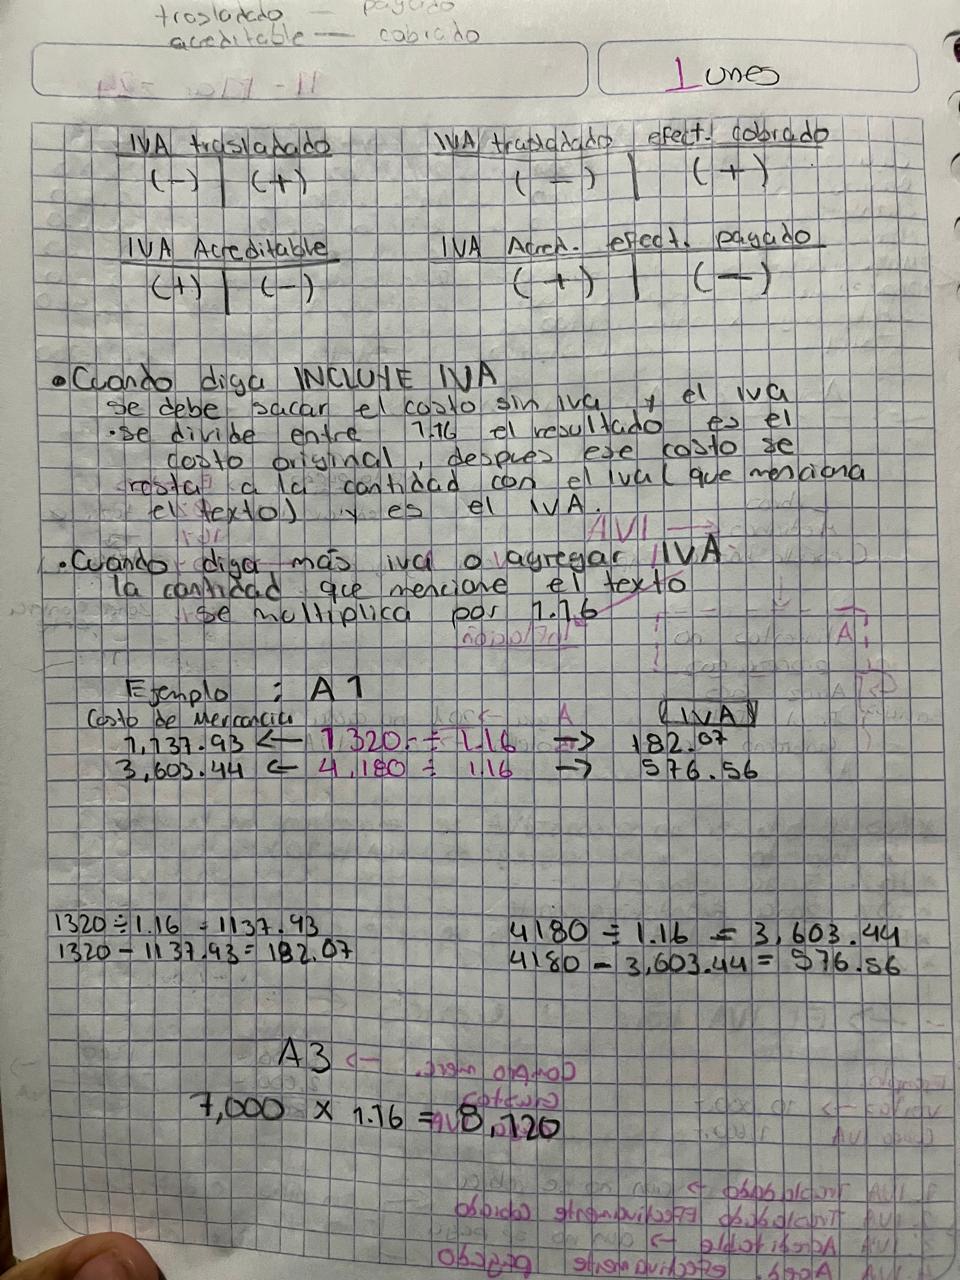 trasladado — pagado
acreditable — cobrado
Lunes
IVA trasladado
(-) | (+)
IVA trasladado efect. cobrado
(-) | (+)
IVA Acreditable
(+) | (-)
IVA Acred. efect. pagado
(+) | (-)
• Cuando diga INCLUYE IVA
se debe sacar el costo sin iva y el iva
• se divide entre 1.16 el resultado es el
costo original, despues ese costo se
resta a la cantidad con el iva (que menciona
el texto) y es el IVA.
• Cuando diga más iva o agregar IVA
la cantidad que mencione el texto
se multiplica por 1.16
Ejemplo : A1
Costo de Mercancia (IVA)
1,137.93 ← 1,320.- ÷ 1.16 → 182.07
3,603.44 ← 4,180 ÷ 1.16 → 576.56
1320 ÷ 1.16 = 1137.93
1320 - 1137.93 = 182.07
4180 ÷ 1.16 = 3,603.44
4180 - 3,603.44 = 576.56
A3
7,000 x 1.16 = 8,120